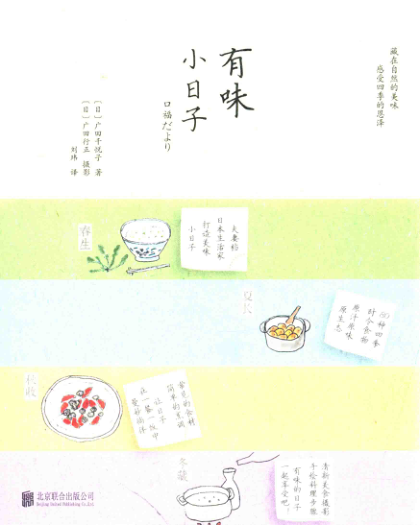 藏在自然的美味
感受四季的恩泽
有味
小日子
口福だより
〔日〕广田千悦子 著
〔日〕广田行正 摄影
刘玮 译
春生
夫妻档
日本生活家
打造美味
小日子
夏长
时令食物
原汁原味
原生态
秋收
常见的食材
简单的烹调
让日子
在一餐一饭中
冬藏
清新美食摄影
手绘料理步骤
有味的日子
一起享受吧！
北京联合出版公司
Beijing United Publishing Co.,Ltd.